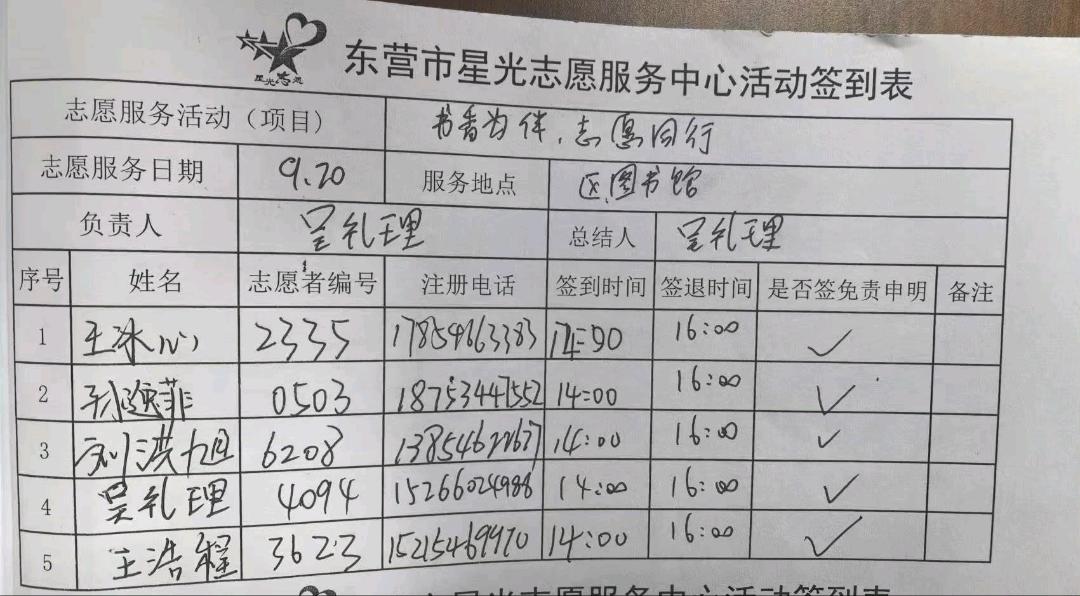 星光志愿
东营市星光志愿服务中心活动签到表
志愿服务活动（项目） 书香为伴，志愿同行
志愿服务日期 9.20 服务地点 区图书馆
负责人 吴礼理 总结人 吴礼理
序号 姓名 志愿者编号 注册电话 签到时间 签退时间 是否签免责申明 备注
1 王冰心 2335 17854663383 14:00 16:00 ✓
2 0503 18753447552 14:00 16:00 ✓
3 刘洪旭 6208 13854622677 14:00 16:00 ✓
4 吴礼理 4094 15266024988 14:00 16:00 ✓
5 王浩程 3623 15215469970 14:00 16:00 ✓
星光志愿服务中心活动签到表